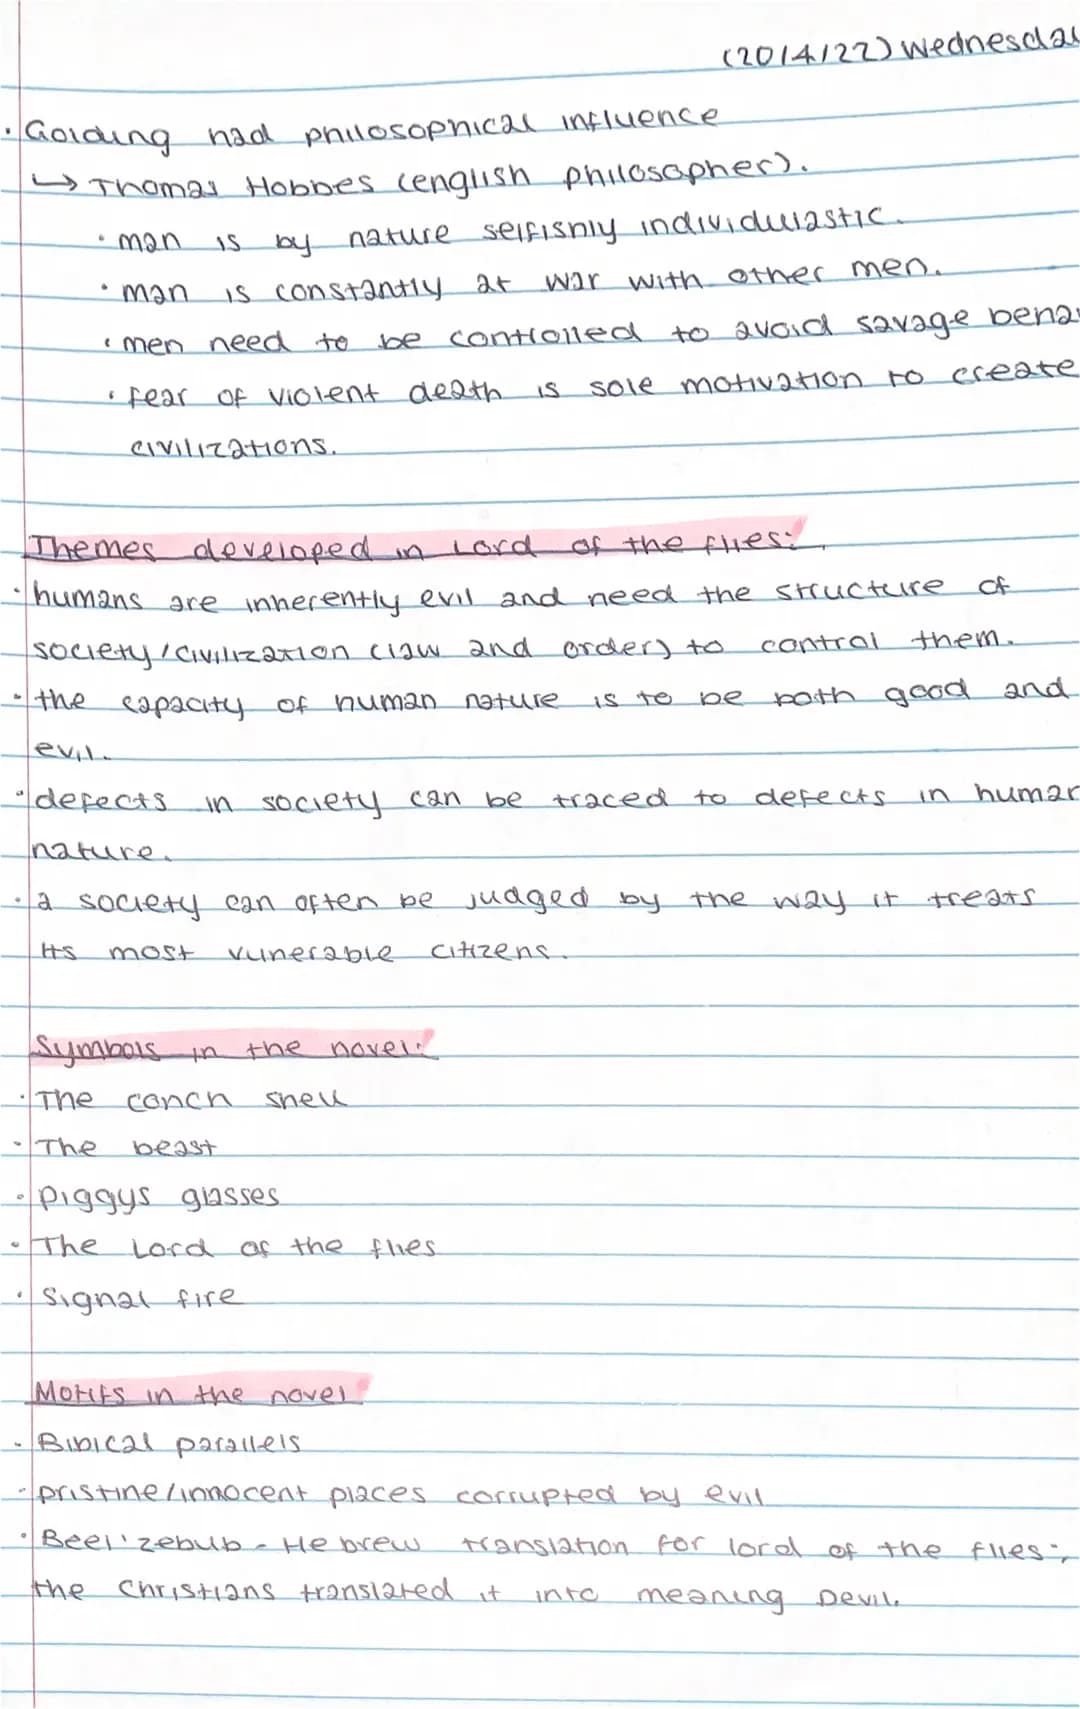 (20/4/22) Wednesda
· Golding had philosophical influence
↳ Thomas Hobbes (english philosopher).
· man is by nature selfishly individulastic.
· man is constantly at war with other men.
· men need to be controlled to avoid savage beha
· fear of violent death is sole motivation to create
civilizations.
Themes developed in Lord of the flies:
· humans are inherently evil and need the structure of
society/civilization (law and order) to control them.
· the capacity of human nature is to be both good and
evil.
· defects in society can be traced to defects in human
nature.
· a society can often be judged by the way it treats
its most vunerable citizens.
Symbols in the novel:
· The conch shell
· The beast
· Piggys glasses
· The Lord of the flies
· Signal fire
Motifs in the novel
· Bibical parallels
· pristine/innocent places corrupted by evil
· Beel'zebub - Hebrew translation for lord of the flies;
the Christians translated it into meaning Devil.